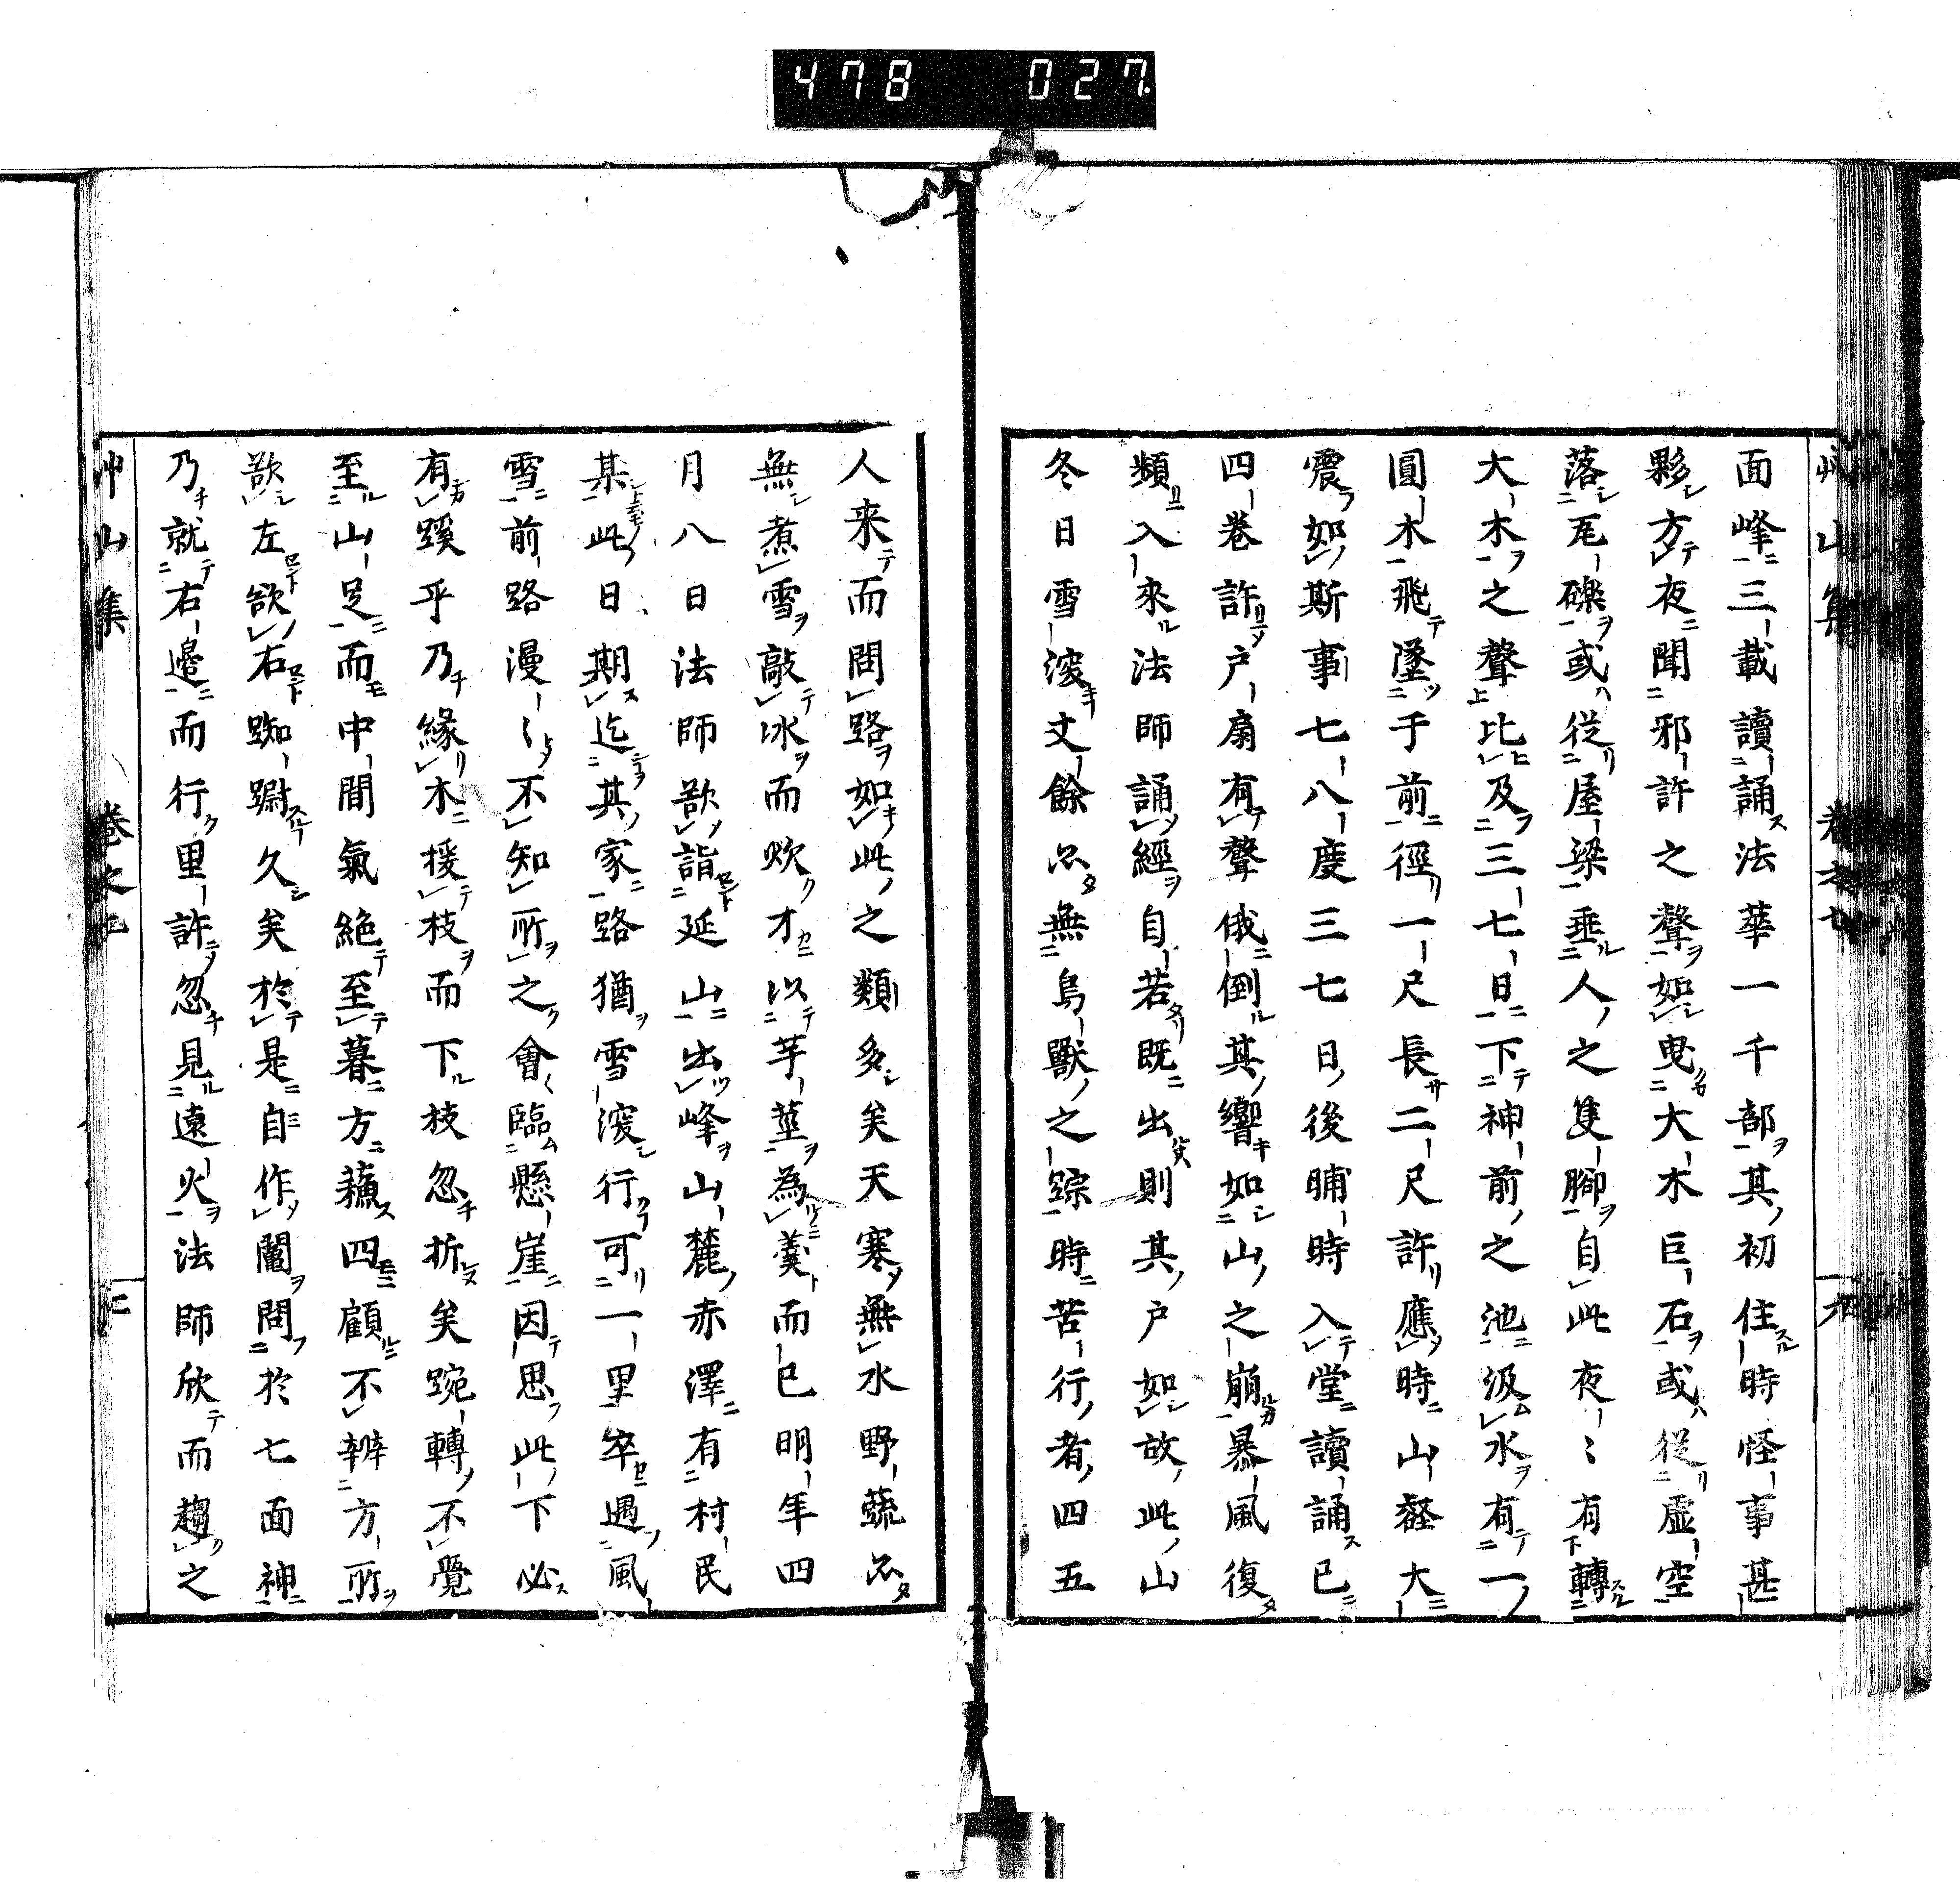 478 027.
面峰三載讀誦法華一千部其初住時怪事甚
夥方夜聞邪許之聲如曳大木巨石或從虛空
落瓦礫或從屋梁垂人之隻腳自此夜〻有轉
大木之聲比及三七日下神前之池汲水有一
圓木飛墜于前徑一尺長二尺許應時山壑大
震如斯事七八度三七日後晡時入堂讀誦已
四卷許戶扇有聲俄倒其響如山之崩暴風復
頻入來法師誦經自若既出則其戶如故此山
冬日雪深丈餘亦無鳥獸之蹤時苦行者四五
人来而問路如此之類多矣天寒無水野蔬亦
無煮雪敲冰而炊才以芋莖為羹而已明年四
月八日法師欲詣延山出峰山麓赤澤有村民
某此日期迄其家路猶雪深行可一里卒遇風
雪前路漫〻不知所之會臨懸崖因思此下必
有蹊乎乃緣木援枝而下枝忽折矣踠轉不覺
至山足而中間氣絕至暮方蘓四顧不辨方所
欲左欲右踟躕久矣於是自作鬮問於七面神
乃就右邊而行里許忽見遠火法師欣而趨之
艸山集 卷之